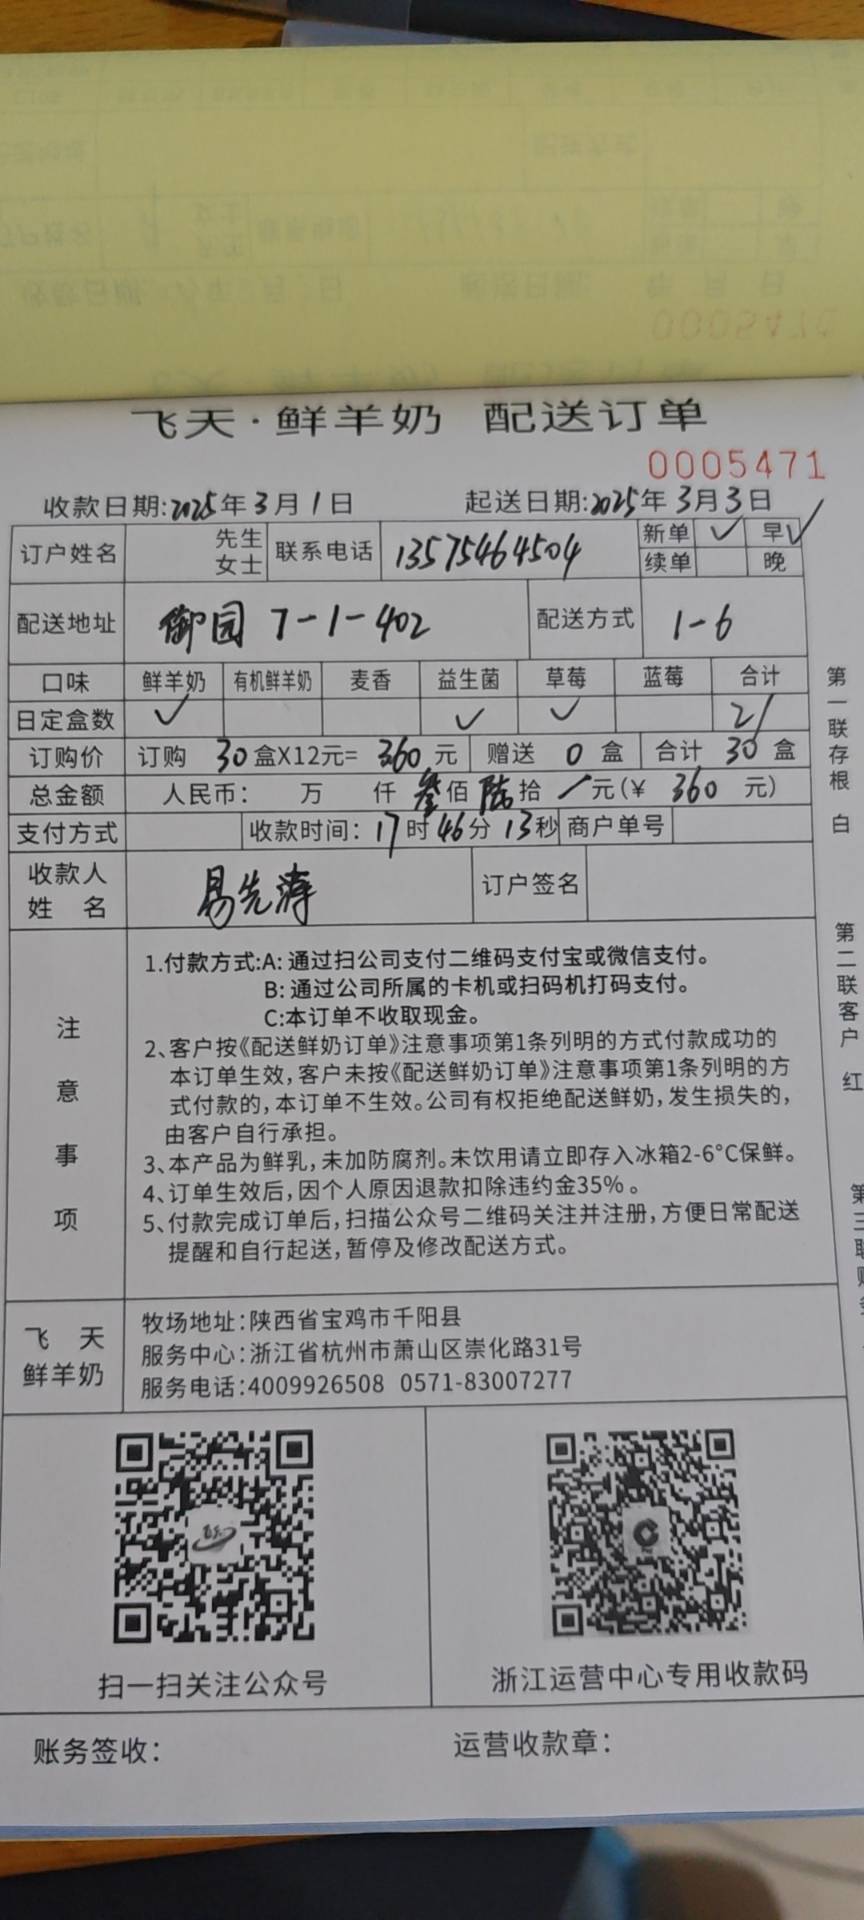 飞天·鲜羊奶 配送订单
0005471
收款日期:2025年3月1日 起送日期:2025年3月3日
订户姓名 先生 女士 联系电话 13575464504 新单 ✓ 早 ✓
续单 晚
配送地址 御园 7-1-402 配送方式 1-6
口味 鲜羊奶 有机鲜羊奶 麦香 益生菌 草莓 蓝莓 合计
日定盒数 ✓ ✓ ✓
订购价 订购 30盒X12元=360元 赠送 0 盒 合计 30 盒
总金额 人民币: 万 仟 叁佰 陆拾 元(¥ 360 元)
支付方式 收款时间: 17时46分13秒 商户单号
收款人
姓 名 易先涛 订户签名
注意事项
1.付款方式:A: 通过扫公司支付二维码支付宝或微信支付。
B: 通过公司所属的卡机或扫码机打码支付。
C:本订单不收取现金。
2、客户按《配送鲜奶订单》注意事项第1条列明的方式付款成功的
本订单生效,客户未按《配送鲜奶订单》注意事项第1条列明的方
式付款的,本订单不生效。公司有权拒绝配送鲜奶,发生损失的,
由客户自行承担。
3、本产品为鲜乳,未加防腐剂。未饮用请立即存入冰箱2-6°C保鲜。
4、订单生效后,因个人原因退款扣除违约金35%。
5、付款完成订单后,扫描公众号二维码关注并注册,方便日常配送
提醒和自行起送,暂停及修改配送方式。
飞 天
鲜羊奶
牧场地址:陕西省宝鸡市千阳县
服务中心:浙江省杭州市萧山区崇化路31号
服务电话:4009926508 0571-83007277
扫一扫关注公众号 浙江运营中心专用收款码
账务签收: 运营收款章:
第一联存根 白
第二联客户 红